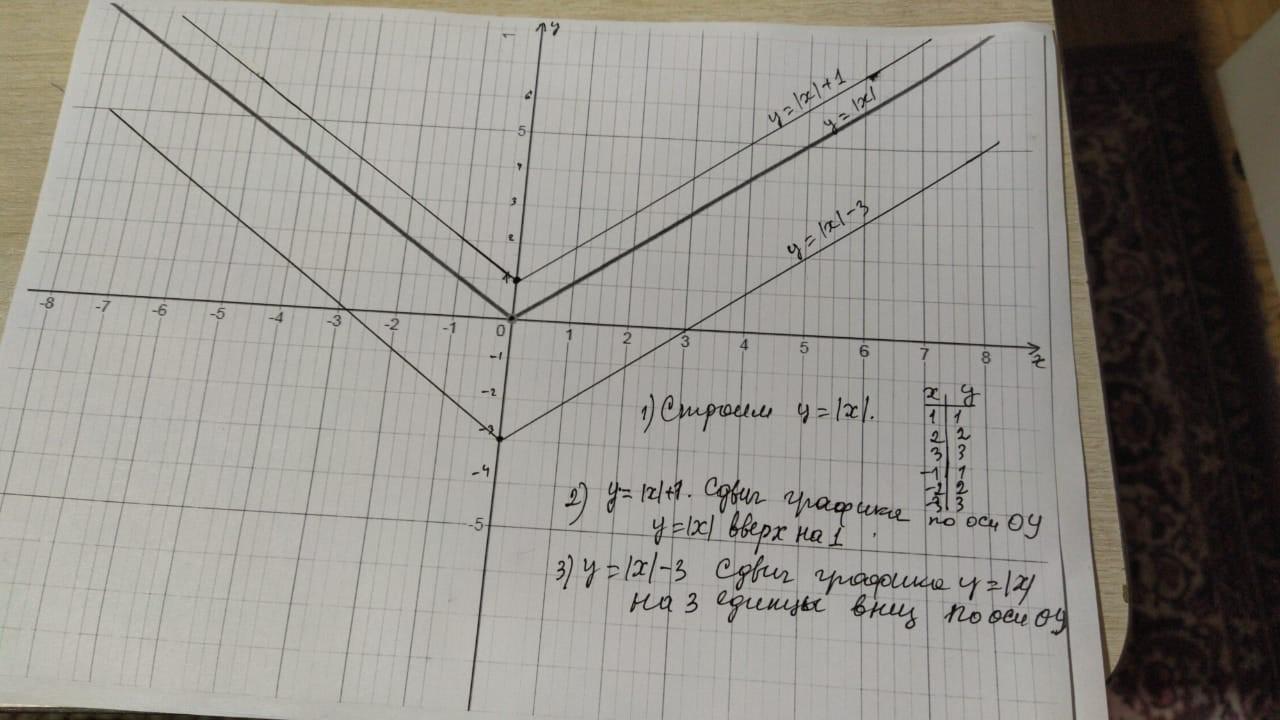 y
6
5
4
3
2
1
y=|x|+1
y=|x|
y=|x|-3
-8 -7 -6 -5 -4 -3 -2 -1 0 1 2 3 4 5 6 7 8
x
-1
-2
-3
-4
-5
1) Строим y=|x|.
x y
1 1
2 2
3 3
-1 1
-2 2
-3 3
2) y=|x|+1. Сдвиг графика по оси ОУ
y=|x| вверх на 1.
3) y=|x|-3 Сдвиг графика y=|x|
на 3 единцы вниз по оси ОУ